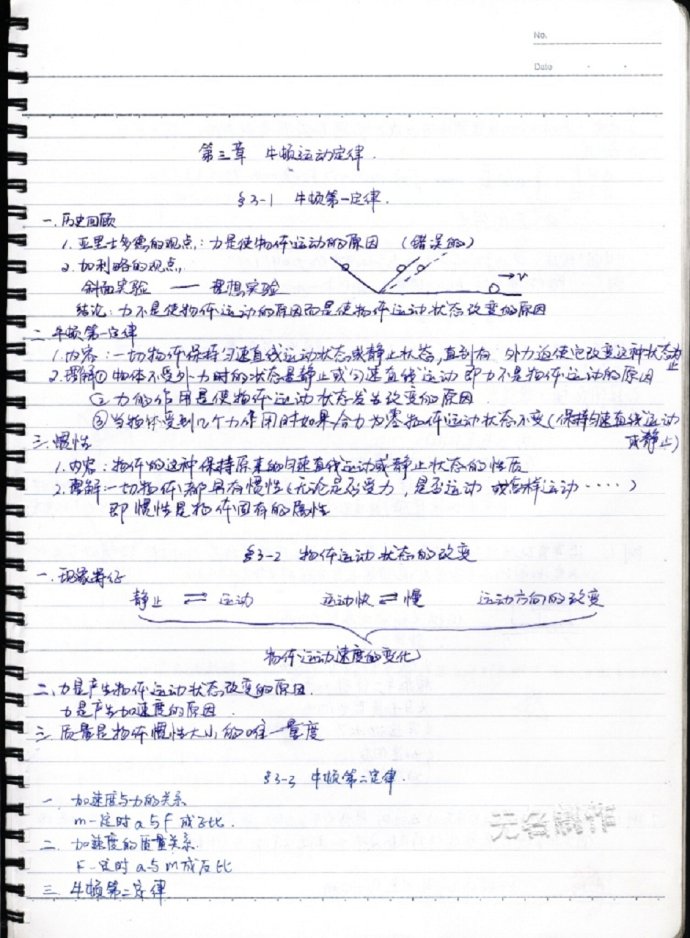 No.
Date
第三章 牛顿运动定律.
§3-1 牛顿第一定律.
一.历史回顾
1.亚里士多德的观点:力是使物体运动的原因 (错误的)
2.加利略的观点,
斜面实验 — 理想实验
v
结论:力不是使物体运动的原因而是使物体运动状态改变的原因
二 牛顿第一定律
1.内容:一切物体保持匀速直线运动状态或静止状态,直到有 外力迫使它改变这种状态为止
2.理解①物体不受外力时的状态是静止或匀速直线运动 即力不是物体运动的原因
②力的作用是使物体运动状态发生改变的原因
③当物体受到几个力作用时如果合力为零物体运动状态不变(保持匀速直线运动或静止)
三.惯性
1.内容:物体的这种保持原来的匀速直线运动或静止状态的性质
2.理解一切物体都具有惯性(无论是否受力,是否运动 或怎样运动·····)
即惯性是物体固有的属性
§3-2 物体运动状态的改变
一.现象特征
静止 ⇌ 运动 运动快 ⇌ 慢 运动方向的改变
物体运动速度的变化
二、力是产生物体运动状态改变的原因.
力是产生加速度的原因.
三.质量是物体惯性大小的唯一量度
§3-3 牛顿第二定律.
一、加速度与力的关系
m一定时a与F成正比.
二、加速度的质量关系.
F一定时a与m成反比
三 牛顿第二定律
无名制作